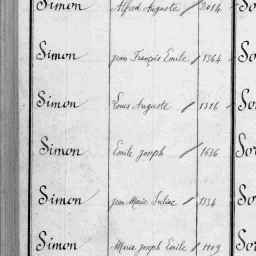 Simon Alfred Auguste 2014 So
Simon Jean François Emile 1364 So
Simon Louis Auguste 1316 So
Simon Emile Joseph 1636 So
Simon Jean Marie 1334 So
Simon Marie Joseph Emile 1909 So